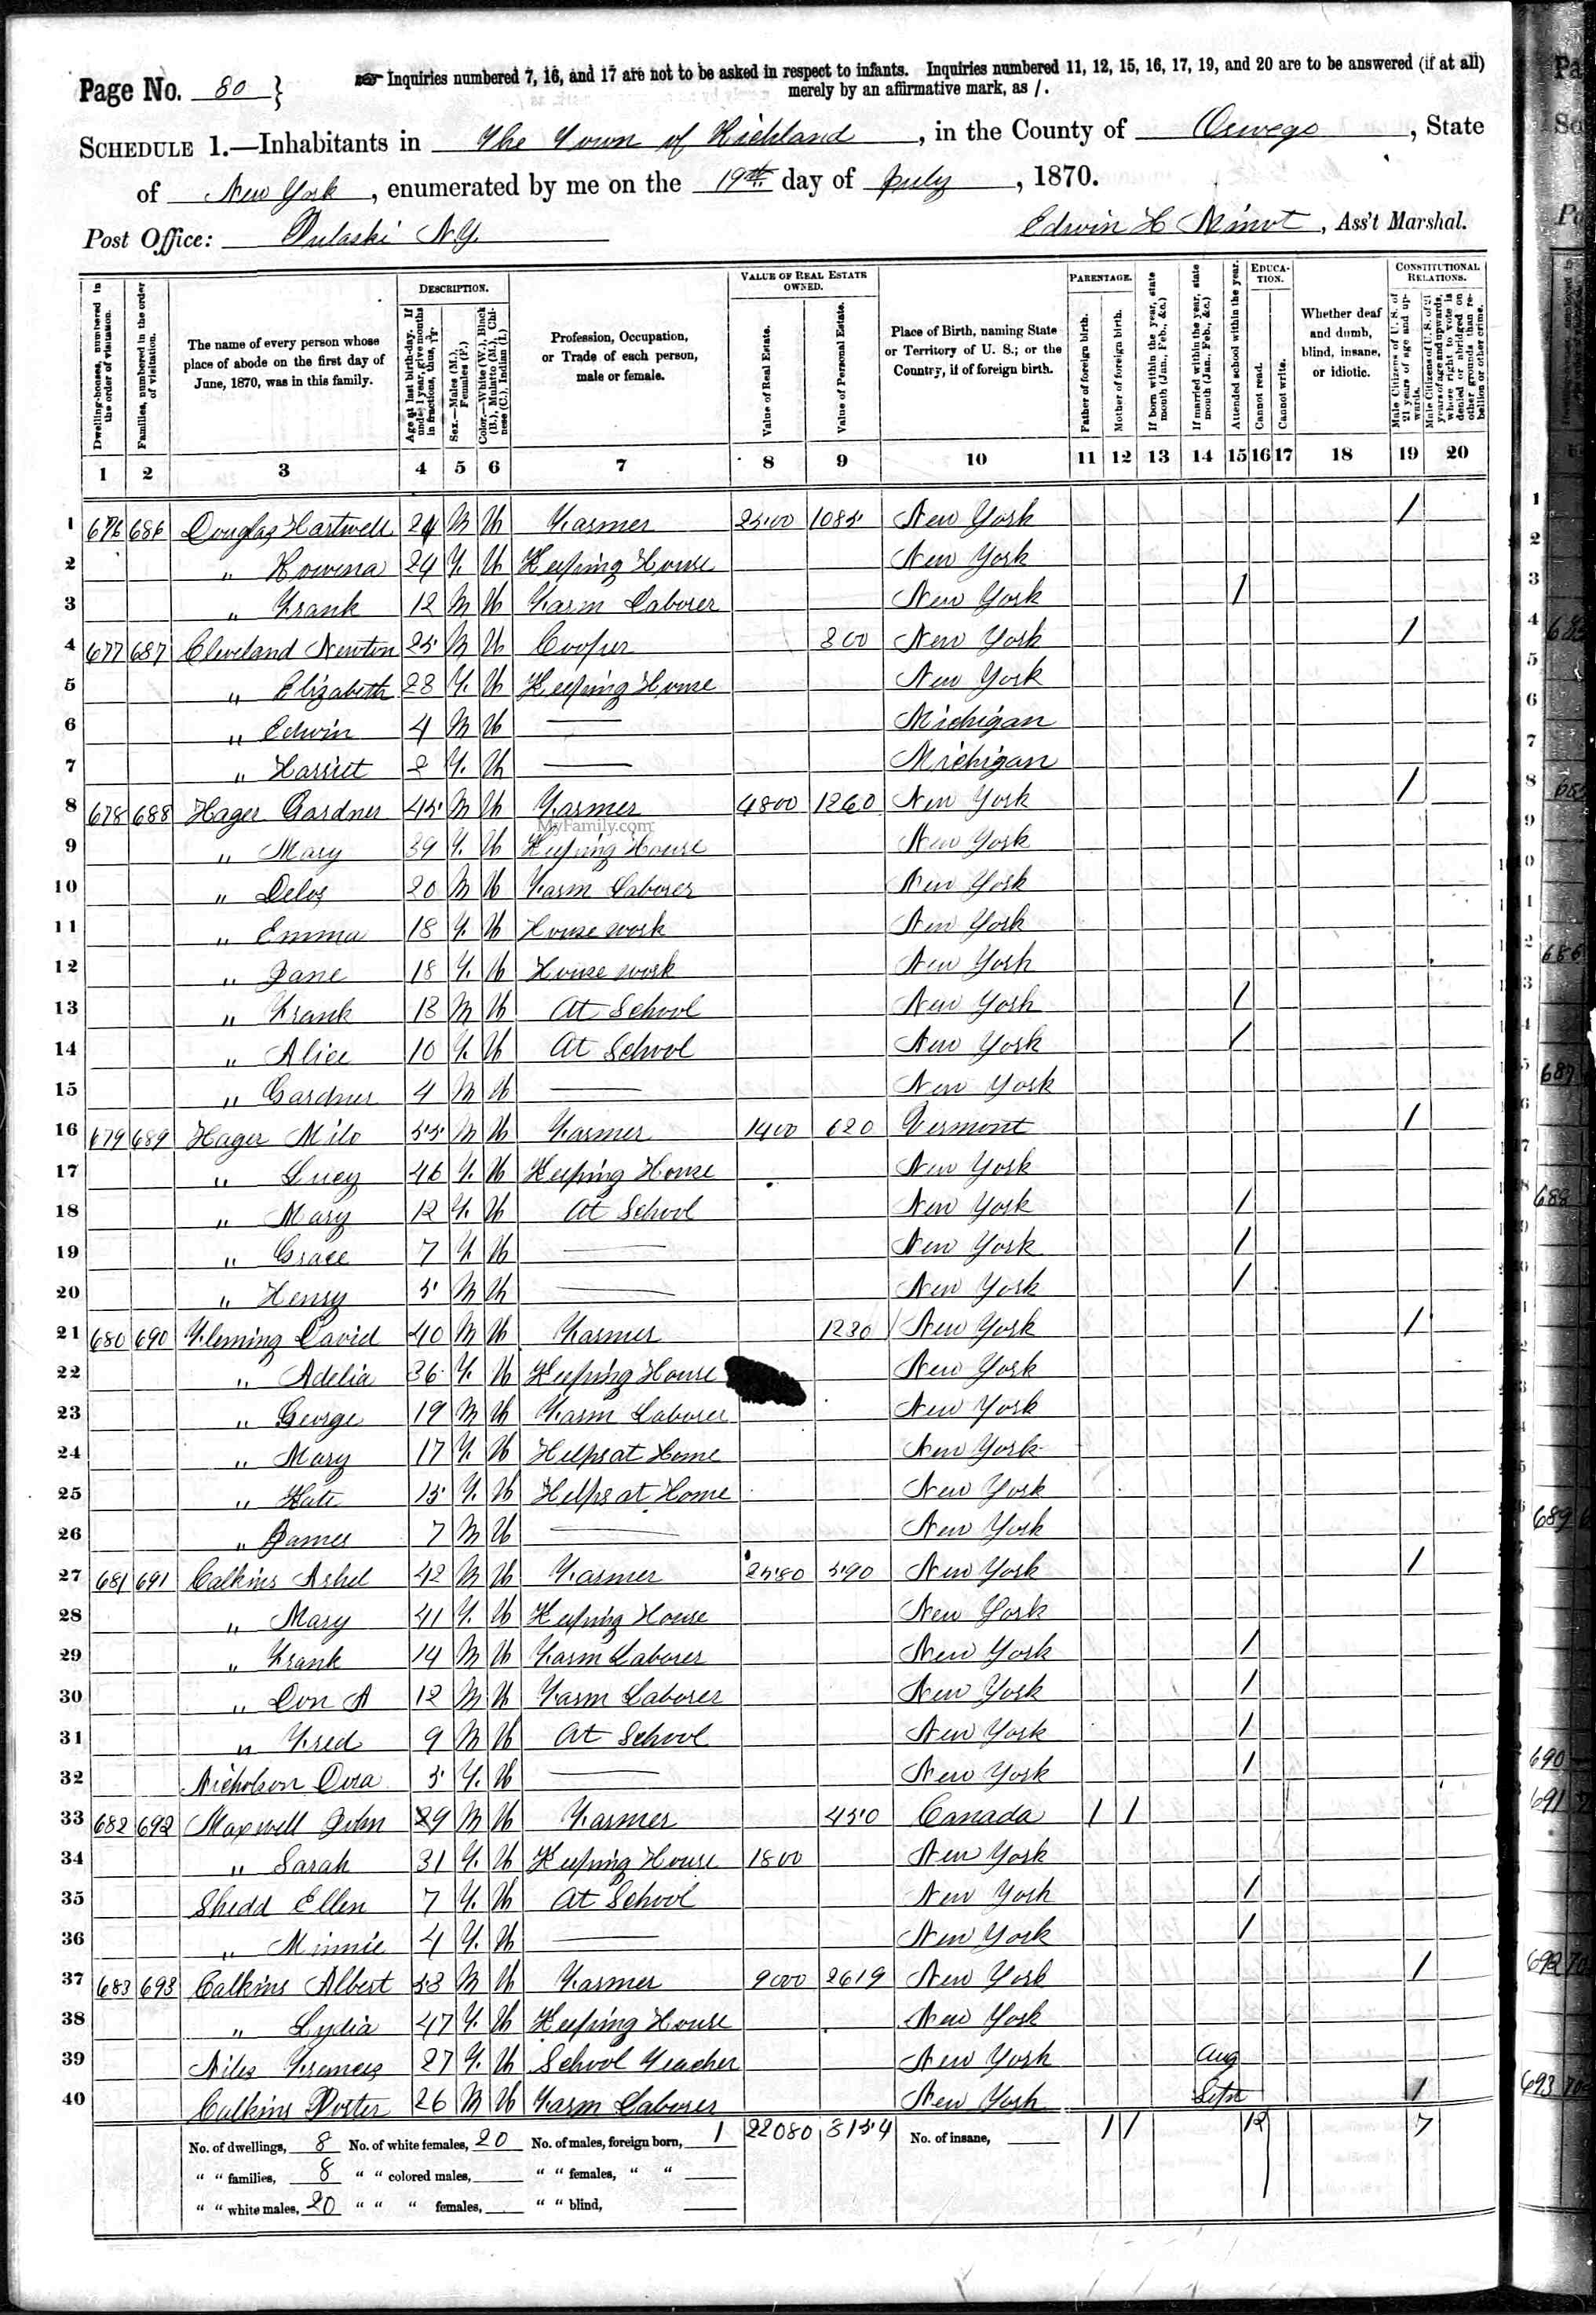 Page No. 80 }
☞ Inquiries numbered 7, 16, and 17 are not to be asked in respect to infants. Inquiries numbered 11, 12, 15, 16, 17, 19, and 20 are to be answered (if at all)
merely by an affirmative mark, as /.
SCHEDULE 1.—Inhabitants in The Town of Richland, in the County of Oswego, State
of New York, enumerated by me on the 19th day of July, 1870.
Post Office: Pulaski N.Y.
Edwin H Minot, Ass't Marshal.
Dwelling-houses, numbered in the order of visitation.
Families, numbered in the order of visitation.
The name of every person whose place of abode on the first day of June, 1870, was in this family.
DESCRIPTION.
Age at last birth-day. If under 1 year, give months in fractions, thus,
Sex.—Males (M.), Females (F.)
Color.—White (W.), Black (B.), Mulatto (M.), Chinese (C.), Indian (I.)
Profession, Occupation, or Trade of each person, male or female.
VALUE OF REAL ESTATE OWNED.
Value of Real Estate.
Value of Personal Estate.
Place of Birth, naming State or Territory of U. S.; or the Country, if of foreign birth.
PARENTAGE.
Father of foreign birth.
Mother of foreign birth.
If born within the year, state month (Jan., Feb., &c.)
If married within the year, state month (Jan., Feb., &c.)
Attended school within the year.
EDUCATION.
Cannot read.
Cannot write.
Whether deaf and dumb, blind, insane, or idiotic.
CONSTITUTIONAL RELATIONS.
Male Citizens of U. S. of 21 years of age and upwards.
Male Citizens of U. S. of 21 years of age and upwards, whose right to vote is denied or abridged on other grounds than rebellion or other crime.
1 2 3 4 5 6 7 8 9 10 11 12 13 14 15 16 17 18 19 20
1 676 686 Douglas Hartwell 24 M W Farmer 2500 1085 New York /
2 " Rowena 24 F. W Keeping House New York
3 " Frank 12 M W Farm Laborer New York /
4 677 687 Cleveland Newton 25 M W Cooper 300 New York /
5 " Elizabeth 23 F. W Keeping House New York
6 " Edwin 4 M W — Michigan
7 " Harriet 2 F. W — Michigan
8 678 688 Hager Gardner 45 M W Farmer 4800 1260 New York /
MyFamily.com
9 " Mary 39 F. W Keeping House New York
10 " Delos 20 M W Farm Laborer New York
11 " Emma 18 F. W House work New York
12 " Jane 18 F. W House work New York
13 " Frank 13 M W At School New York /
14 " Alice 10 F. W At School New York /
15 " Gardner 4 M W — New York
16 679 689 Hager Milo 55 M W Farmer 1400 620 Vermont /
17 " Lucy 46 F. W Keeping House New York
18 " Mary 12 F. W At School New York /
19 " Grace 7 F. W — New York /
20 " Henry 5 M W — New York /
21 680 690 Fleming David 40 M W Farmer 1230 New York /
22 " Adelia 36 F. W Keeping House New York
23 " George 19 M W Farm Laborer New York
24 " Mary 17 F. W Helps at Home New York
25 " Kate 15 F. W Helps at Home New York
26 " James 7 M W — New York
27 681 691 Calkins Ashel 42 M W Farmer 2580 590 New York /
28 " Mary 41 F. W Keeping House New York
29 " Frank 14 M W Farm Laborer New York /
30 " Don A 12 M W Farm Laborer New York /
31 " Fred 9 M W At School New York /
32 Nicholson Ora 5 F. W — New York /
33 682 692 Maxwell John 29 M W Farmer 450 Canada / /
34 " Sarah 31 F. W Keeping House 1800 New York
35 Shedd Ellen 7 F. W At School New York /
36 " Minnie 4 F. W — New York /
37 683 693 Calkins Albert 53 M W Farmer 9000 2619 New York /
38 " Lydia 47 F. W Keeping House New York
39 Niles Frances 27 F. W School Teacher New York Aug
40 Calkins Porter 26 M W Farm Laborer New York Sept /
No. of dwellings, 8 No. of white females, 20 No. of males, foreign born, 1 22080 8154 No. of insane, 1 1 12 7
" " families, 8 " " colored males, " " females, " "
" " white males, 20 " " " females, " " blind,